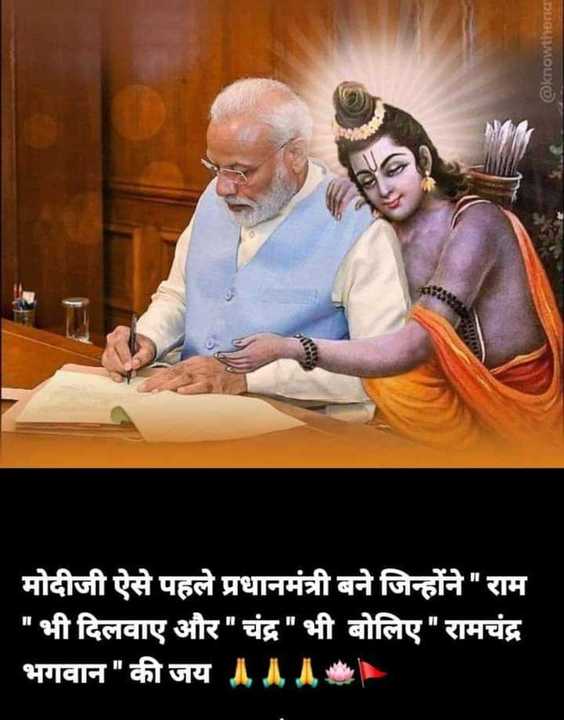 @knowthena
मोदीजी ऐसे पहले प्रधानमंत्री बने जिन्होंने " राम
" भी दिलवाए और " चंद्र " भी बोलिए " रामचंद्र
भगवान " की जय 🙏🙏🙏🪷🚩